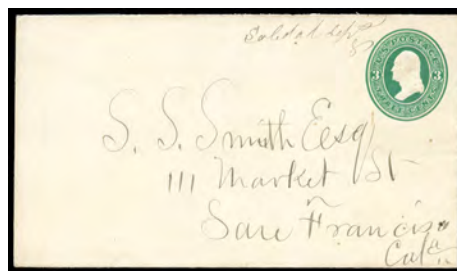 Soledad dept
U.S. POSTAGE
3 3
THREE CENTS
S. S. Smith Esq
111 Market St
San Francisco
Cala